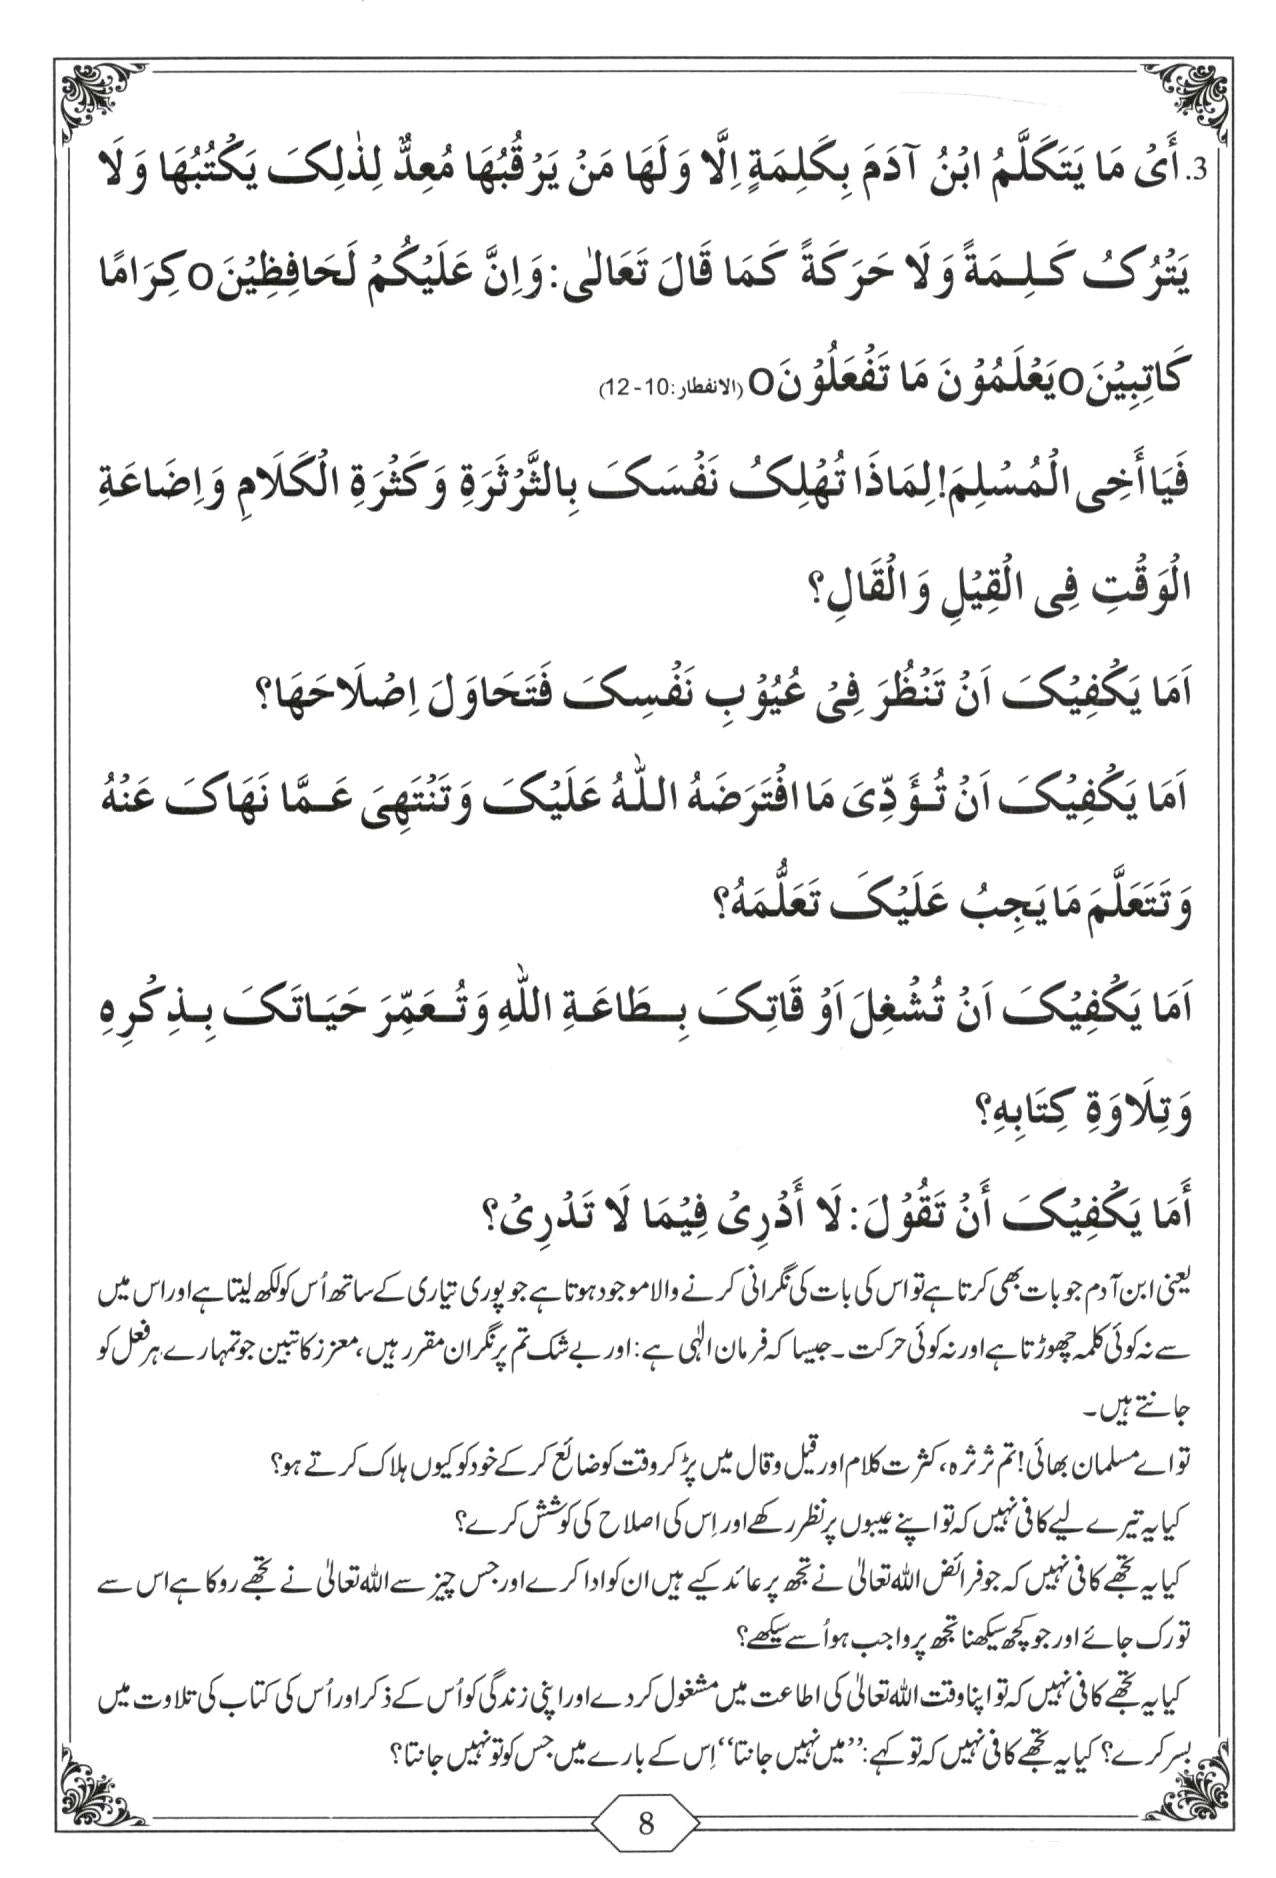 3. أَىْ مَا يَتَكَلَّمُ ابْنُ آدَمَ بِكَلِمَةٍ اِلَّا وَلَهَا مَنْ يَرْقُبُهَا مُعِدٌّ لِذٰلِکَ يَكْتُبُهَا وَلَا
يَتْرُکُ كَلِمَةً وَلَا حَرَكَةً كَمَا قَالَ تَعَالٰى: وَاِنَّ عَلَيْكُمْ لَحَافِظِيْنَ o كِرَامًا
كَاتِبِيْنَ o يَعْلَمُوْنَ مَا تَفْعَلُوْنَ o (الانفطار: 10-12)
فَيَا أَخِى الْمُسْلِمَ! لِمَاذَا تُهْلِکُ نَفْسَکَ بِالثَّرْثَرَةِ وَكَثْرَةِ الْكَلَامِ وَاِضَاعَةِ
الْوَقْتِ فِى الْقِيْلِ وَالْقَالِ؟
اَمَا يَكْفِيْکَ اَنْ تَنْظُرَ فِىْ عُيُوْبِ نَفْسِکَ فَتَحَاوَلَ اِصْلَاحَهَا؟
اَمَا يَكْفِيْکَ اَنْ تُؤَدِّىَ مَا افْتَرَضَهُ اللّٰهُ عَلَيْکَ وَتَنْتَهِىَ عَمَّا نَهَاکَ عَنْهُ
وَتَتَعَلَّمَ مَا يَجِبُ عَلَيْکَ تَعَلُّمَهُ؟
اَمَا يَكْفِيْکَ اَنْ تُشْغِلَ اَوْ قَاتِکَ بِطَاعَةِ اللّٰهِ وَتُعَمِّرَ حَيَاتَکَ بِذِكْرِهِ
وَتِلَاوَةِ كِتَابِهِ؟
أَمَا يَكْفِيْکَ أَنْ تَقُوْلَ: لَا أَدْرِىْ فِيْمَا لَا تَدْرِىْ؟
یعنی ابن آدم جو بات بھی کرتا ہے تو اس کی بات کی نگرانی کرنے والا موجود ہوتا ہے جو پوری تیاری کے ساتھ اُس کو لکھ لیتا ہے اور اس میں
سے نہ کوئی کلمہ چھوڑتا ہے اور نہ کوئی حرکت۔ جیسا کہ فرمان الٰہی ہے: اور بے شک تم پر نگران مقرر ہیں، معزز کاتبین جو تمہارے ہر فعل کو
جانتے ہیں۔
تو اے مسلمان بھائی! تم ثرثرہ، کثرت کلام اور قیل و قال میں پڑ کر وقت کو ضائع کر کے خود کو کیوں ہلاک کرتے ہو؟
کیا یہ تیرے لیے کافی نہیں کہ تو اپنے عیبوں پر نظر رکھے اور اِس کی اصلاح کی کوشش کرے؟
کیا یہ تجھے کافی نہیں کہ جو فرائض اللہ تعالیٰ نے تجھ پر عائد کیے ہیں ان کو ادا کرے اور جس چیز سے اللہ تعالیٰ نے تجھے روکا ہے اس سے
تو رک جائے اور جو کچھ سیکھنا تجھ پر واجب ہو اُسے سیکھے؟
کیا یہ تجھے کافی نہیں کہ تو اپنا وقت اللہ تعالیٰ کی اطاعت میں مشغول کر دے اور اپنی زندگی کو اُس کے ذکر اور اُس کی کتاب کی تلاوت میں
بسر کرے؟ کیا یہ تجھے کافی نہیں کہ تو کہے: ’’میں نہیں جانتا‘‘ اِس کے بارے میں جس کو تو نہیں جانتا؟
8